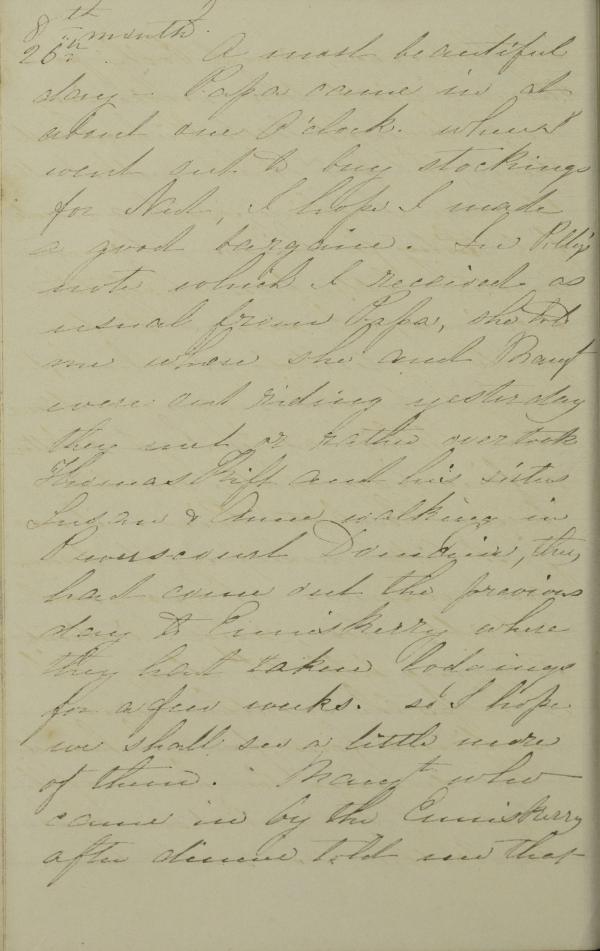 8th month.
26th. A most beautiful
day - Papa came in at
about one O'clock. when I
went out to buy stockings
for Ned, I hope I made
a good bargaine. In Polly's
note which I received as
usual from Papa, she told
me when she and Margt
were out riding yesterday
they met or rather overtook
Thomas and his sisters
Susan & Anne walking in
Powerscourt Domain, they
had come out the previous
day to Enniskerry where
they had taken lodgings
for a few weeks. so I hope
we shall see a little more
of them. Margt who
came in by the Enniskerry
after dinner told me that